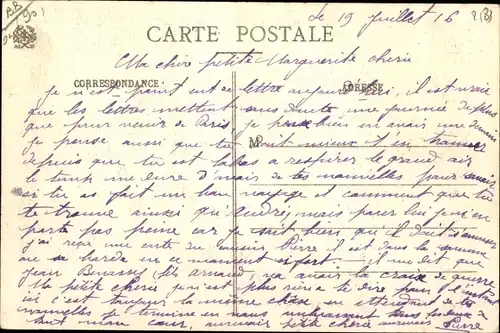 Le 19 Juillet 16
CARTE POSTALE
Ma chère petite Marguerite chérie
CORRESPONDANCE ADRESSE
je n'ai point eut de lettre aujourd'hui, il est vraie
que les lettres mettent sans doute une journée de plus
que pour venir de Paris, je pense bien en avoir une demain
je pense aussi que tu M doit mieux t'en trouver
depuis que tu est labas a respirer le grand air
le temp me dure d'avoir de tes nouvelles pour savoir
si tu as fait un bon voyage et comment que tu
te trouve ainsi que Andrée, mais pour lui je n'en
porte pas peine car je sait bien qu'il doit s'amuser
j'ai reçu une carte du cousin Pierre il est dans la somme
au en ce moment il me dit que
Jean (fils Arnaud) a la croix de guerre
Ma petite chérie je n'est plus rien a te dire pour l'instant
ici c'est toujour la même chose, en attendant de tes
nouvelles je termine en vous embrassant tous les deux de
tout mon cœur, aurevoir petite chérie Pierre